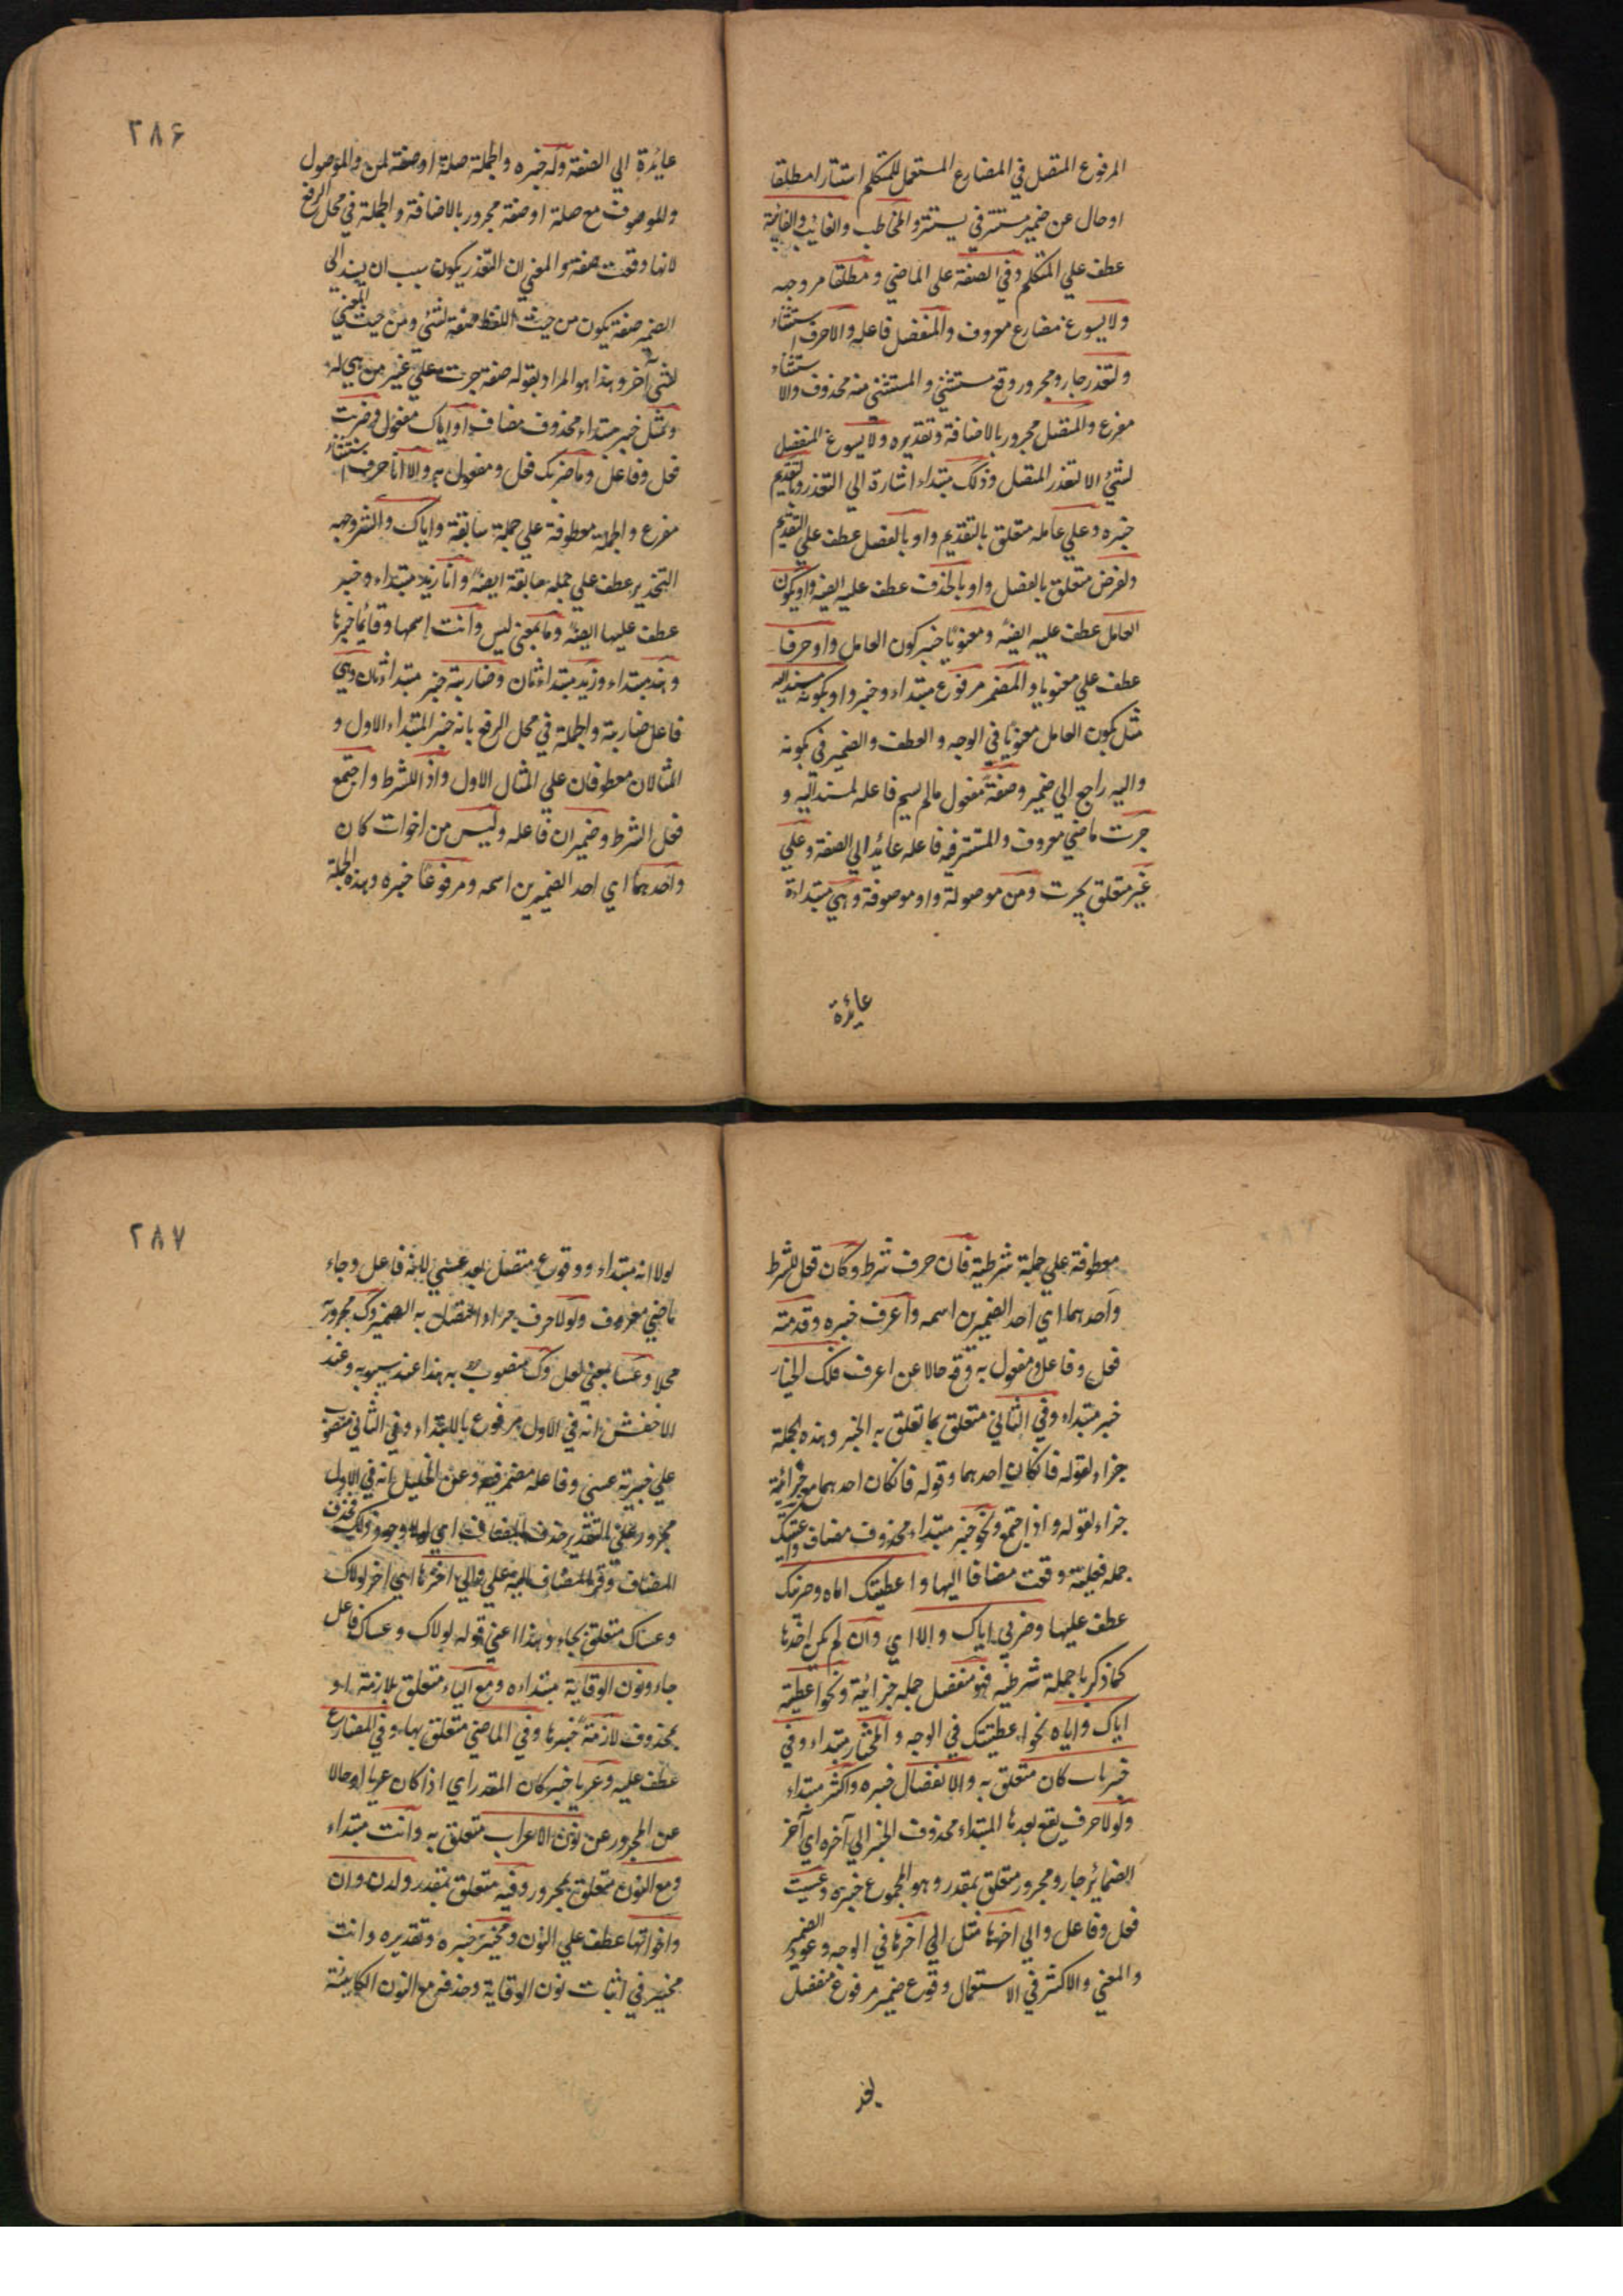 المرفوع المتصل في المضارع المستعمل للمتكلم استتارا مطلقا
او حال عن ضمير مستتر في يستتر والمخاطب والغائب والغائبة
عطف علي المتكلم وفي الصفة علي الماضي ومطلقا مر وجهه
ولا يسوغ مضارع معروف والمنفصل فاعله والا حرف استثناء
ولتعذر جار ومجرور وقع مستثني والمستثني منه محذوف والا استثناء
مفرغ والمتصل مجرور بالاضافة وتقديره ولا يسوغ المنفصل
لشئ الا لتعذر المتصل وذلك مبتداء اشارة الي التعذر وبالتقديم
خبره وعلي عامله متعلق بالتقديم واو بالفصل عطف علي التقديم
ولغرض متعلق بالفصل واو بالحذف عطف عليه ايضه واو بكون
العامل عطف عليه ايضه ومعنويا خبر كون العامل واو حرفا
عطف علي معنويا والضمير مرفوع مبتداء وخبر واو بكونه مسند اليه
مثل بكون العامل معنويا في الوجه والعطف والضمير في بكونه
واليه راجع الي ضمير وصفة مفعول ما لم يسم فاعله لمسند اليه و
جرت ماضي معروف والمستتر فيه فاعله عائد الي الصفة وعلي
غير متعلق بجرت ومن موصولة واو موصوفة وهي مبتداءة
عائدة
۲۸۶
عائدة الي الصفة وله خبره والجملة صلة او صفة لمن والموصول
والموصوف مع صلة او صفة مجرور بالاضافة والجملة في محل الرفع
لانها وقعت صفة والمعني ان التعذر يكون سبب ان يسند الي
الضمير صفة يكون من حيث اللفظ صفة لشئ ومن حيث المعني
لشئ آخر وهذا هو المراد بقوله صفة جرت علي غير من هي له
ومثل خبر مبتداء محذوف مضاف او اياك مفعول وضربت
فعل وفاعل وما ضربك فعل ومفعول به والا انا حرف استثناء
مفرغ والجملة معطوفة علي جملة سابقة واياك والشر وجهه
التحذير عطف علي جملة سابقة ايضه وانا زيد مبتداء وخبر
عطف عليها ايضه وما بمعني ليس وانت اسمها وقائما خبرها
وهند مبتداء وزيد مبتداء ثان وضاربته خبر مبتداء ثان وهي
فاعل ضاربته والجملة في محل الرفع بانه خبر المبتداء الاول و
المثالان معطوفان علي المثال الاول واذا للشرط واجتمع
فعل الشرط وضميران فاعله وليس من اخوات كان
واحدهما اي احد الضميرين اسمه ومرفوعا خبره وهذه الجملة
معطوفة علي جملة شرطية فان حرف شرط وكان فعل الشرط
واحدهما اي احد الضميرين اسمه واعرف خبره وقدمته
فعل وفاعل ومفعول به وقع حالا عن اعرف فلك الخيار
خبر مبتداء وفي الثاني متعلق بما تعلق به الخبر وهذه الجملة
جزاء لقوله فان كان احدهما وقوله فان كان احدهما مع جزائية
جزاء لقوله واذا اجتمع ونحو خبر مبتداء محذوف مضاف واعطيتك
جملة فعلية وقعت مضافا اليها واعطيتك اياه وضربك
عطف عليها وضربي اياك والا اي وان لم يكن احدها
كما ذكر بالجملة شرطية فهو منفصل جملة جزائية ونحو اعطيته
اياك واياه نحو اعطيتك في الوجه والمختار مبتداء وفي
خبر باب كان متعلق به والانفصال خبره واكثر مبتداء
ولولا حرف يقع بعدها المبتداء محذوف الخبر الي آخره اي آخر
الضمائر جار ومجرور متعلق بمقدر وهو المجموع خبره وعسيت
فعل وفاعل والي اخرها مثل الي اخرها في الوجه وعود الضمير
والمعني والاكثر في الاستعمال وقوع ضمير مرفوع منفصل
بعد
۲۸۷
لولا انه مبتداء ووقوع متصل بعد عسي لانه فاعل وجاء
ماضي معروف ولولا حرف جر اذا اتصل به الضمير وك مجروره
محلا وعسا بمعني لعل وك منصوب به هذا عند سيبويه وعند
الاخفش انه في الاول مرفوع بالابتداء وفي الثاني منصوب
علي خبرية عسي وفاعله مضمر فيه وعن الخليل انه في الاول
مجرور علي التقدير حذف المضاف اي لولا وجودك فحذف
المضاف وقرا المضاف اليه علي والي اخرها اي اخر لولاك
وعساك متعلق بجاء وهذا اعني قوله لولاك وعساك فاعل
جاء ونون الوقاية مبتداءه ومع الياء متعلق بلازمة او
بمحذوف لازمة خبرها وفي الماضي متعلق بها وفي المضارع
عطف عليه وعريا خبر كان المقدر اي اذا كان عريا او حالا
عن المجرور عن نون الاعراب متعلق به وانت مبتداء
ومع النون متعلق بمجرور وفيه متعلق بمقدر ولدن وان
واخواتها عطف علي النون ومخير خبره وتقديره وانت
مخير في اثبات نون الوقاية وحذفه مع النون الكائنة